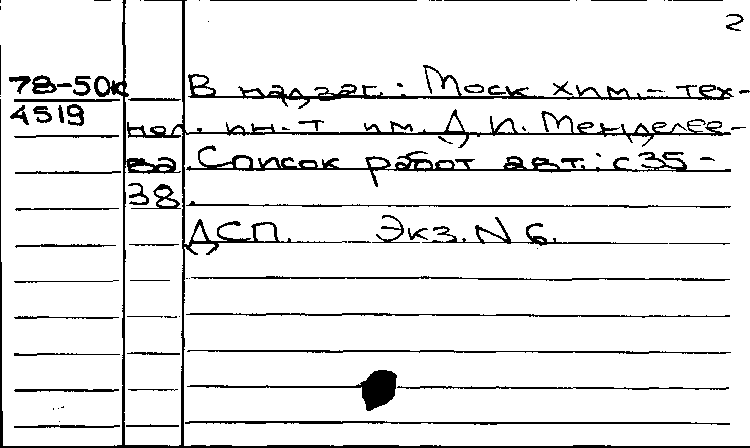 2
78-50к В надзаг.: Моск хим.-тех-
4519 нол. ин-т им. Д. И. Менделее-
ва. Список работ авт.: с 35-
38.
ДСП. Экз. N 6.